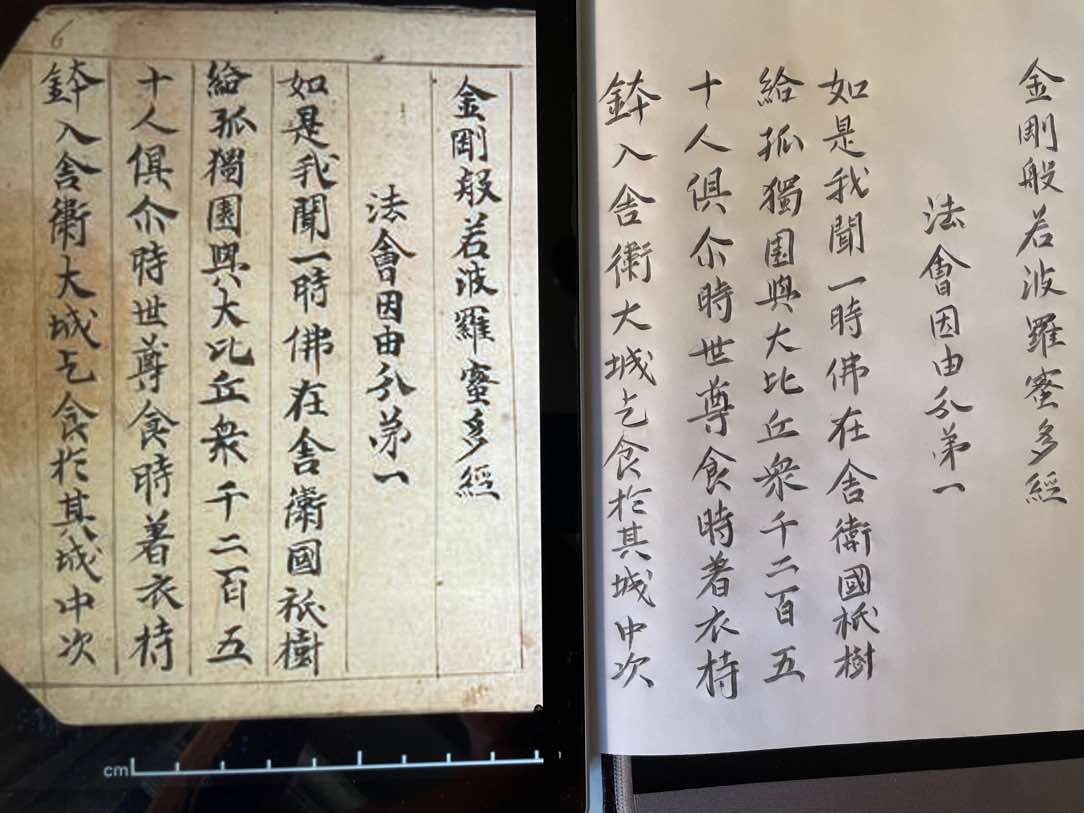 6
金剛般若波羅蜜多經
法會因由分弟一
如是我聞一時佛在舍衛國祇樹
給孤獨園與大比丘衆千二百五
十人俱尒時世尊食時著衣持
鉢入舍衛大城乞食扵其城中次
cm
金剛般若波羅蜜多經
法會因由分弟一
如是我聞一時佛在舍衛國祇樹
給孤獨園與大比丘衆千二百五
十人俱尒時世尊食時著衣持
鉢入舍衛大城乞食扵其城中次